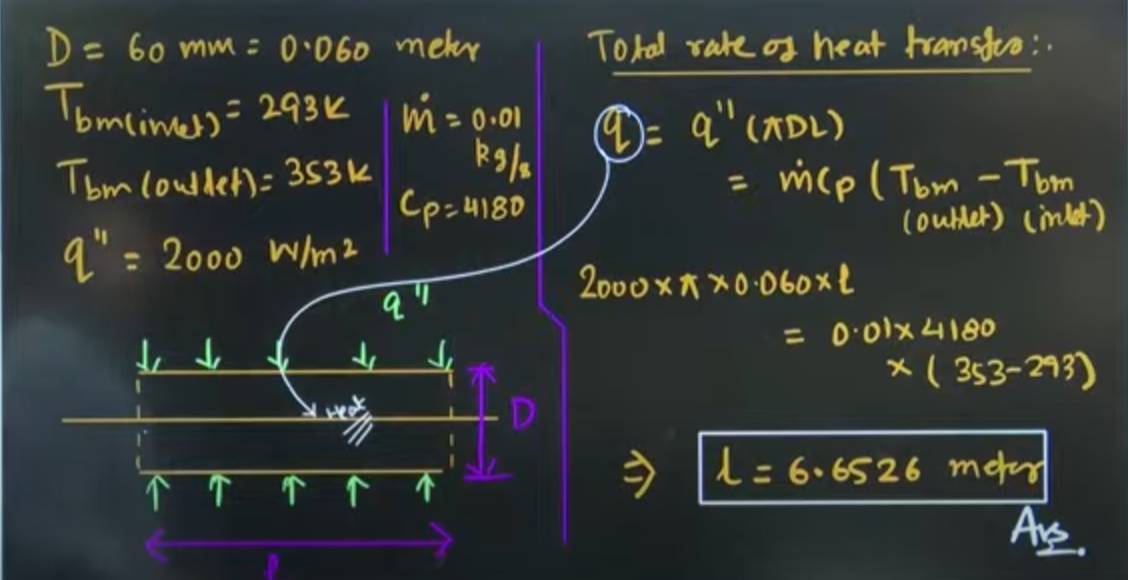 D = 60 mm = 0.060 meter
Tbm(inlet) = 293k
Tbm(outlet) = 353k
q" = 2000 W/m²
ṁ = 0.01
kg/s
Cp = 4180
q"
Heat
D
l
Total rate of heat transfer:.
q = q" (πDL)
= ṁCp (Tbm - Tbm
(outlet) (inlet)
2000 × π × 0.060 × l
= 0.01 × 4180
× (353-293)
⇒ l = 6.6526 meter
Ans.